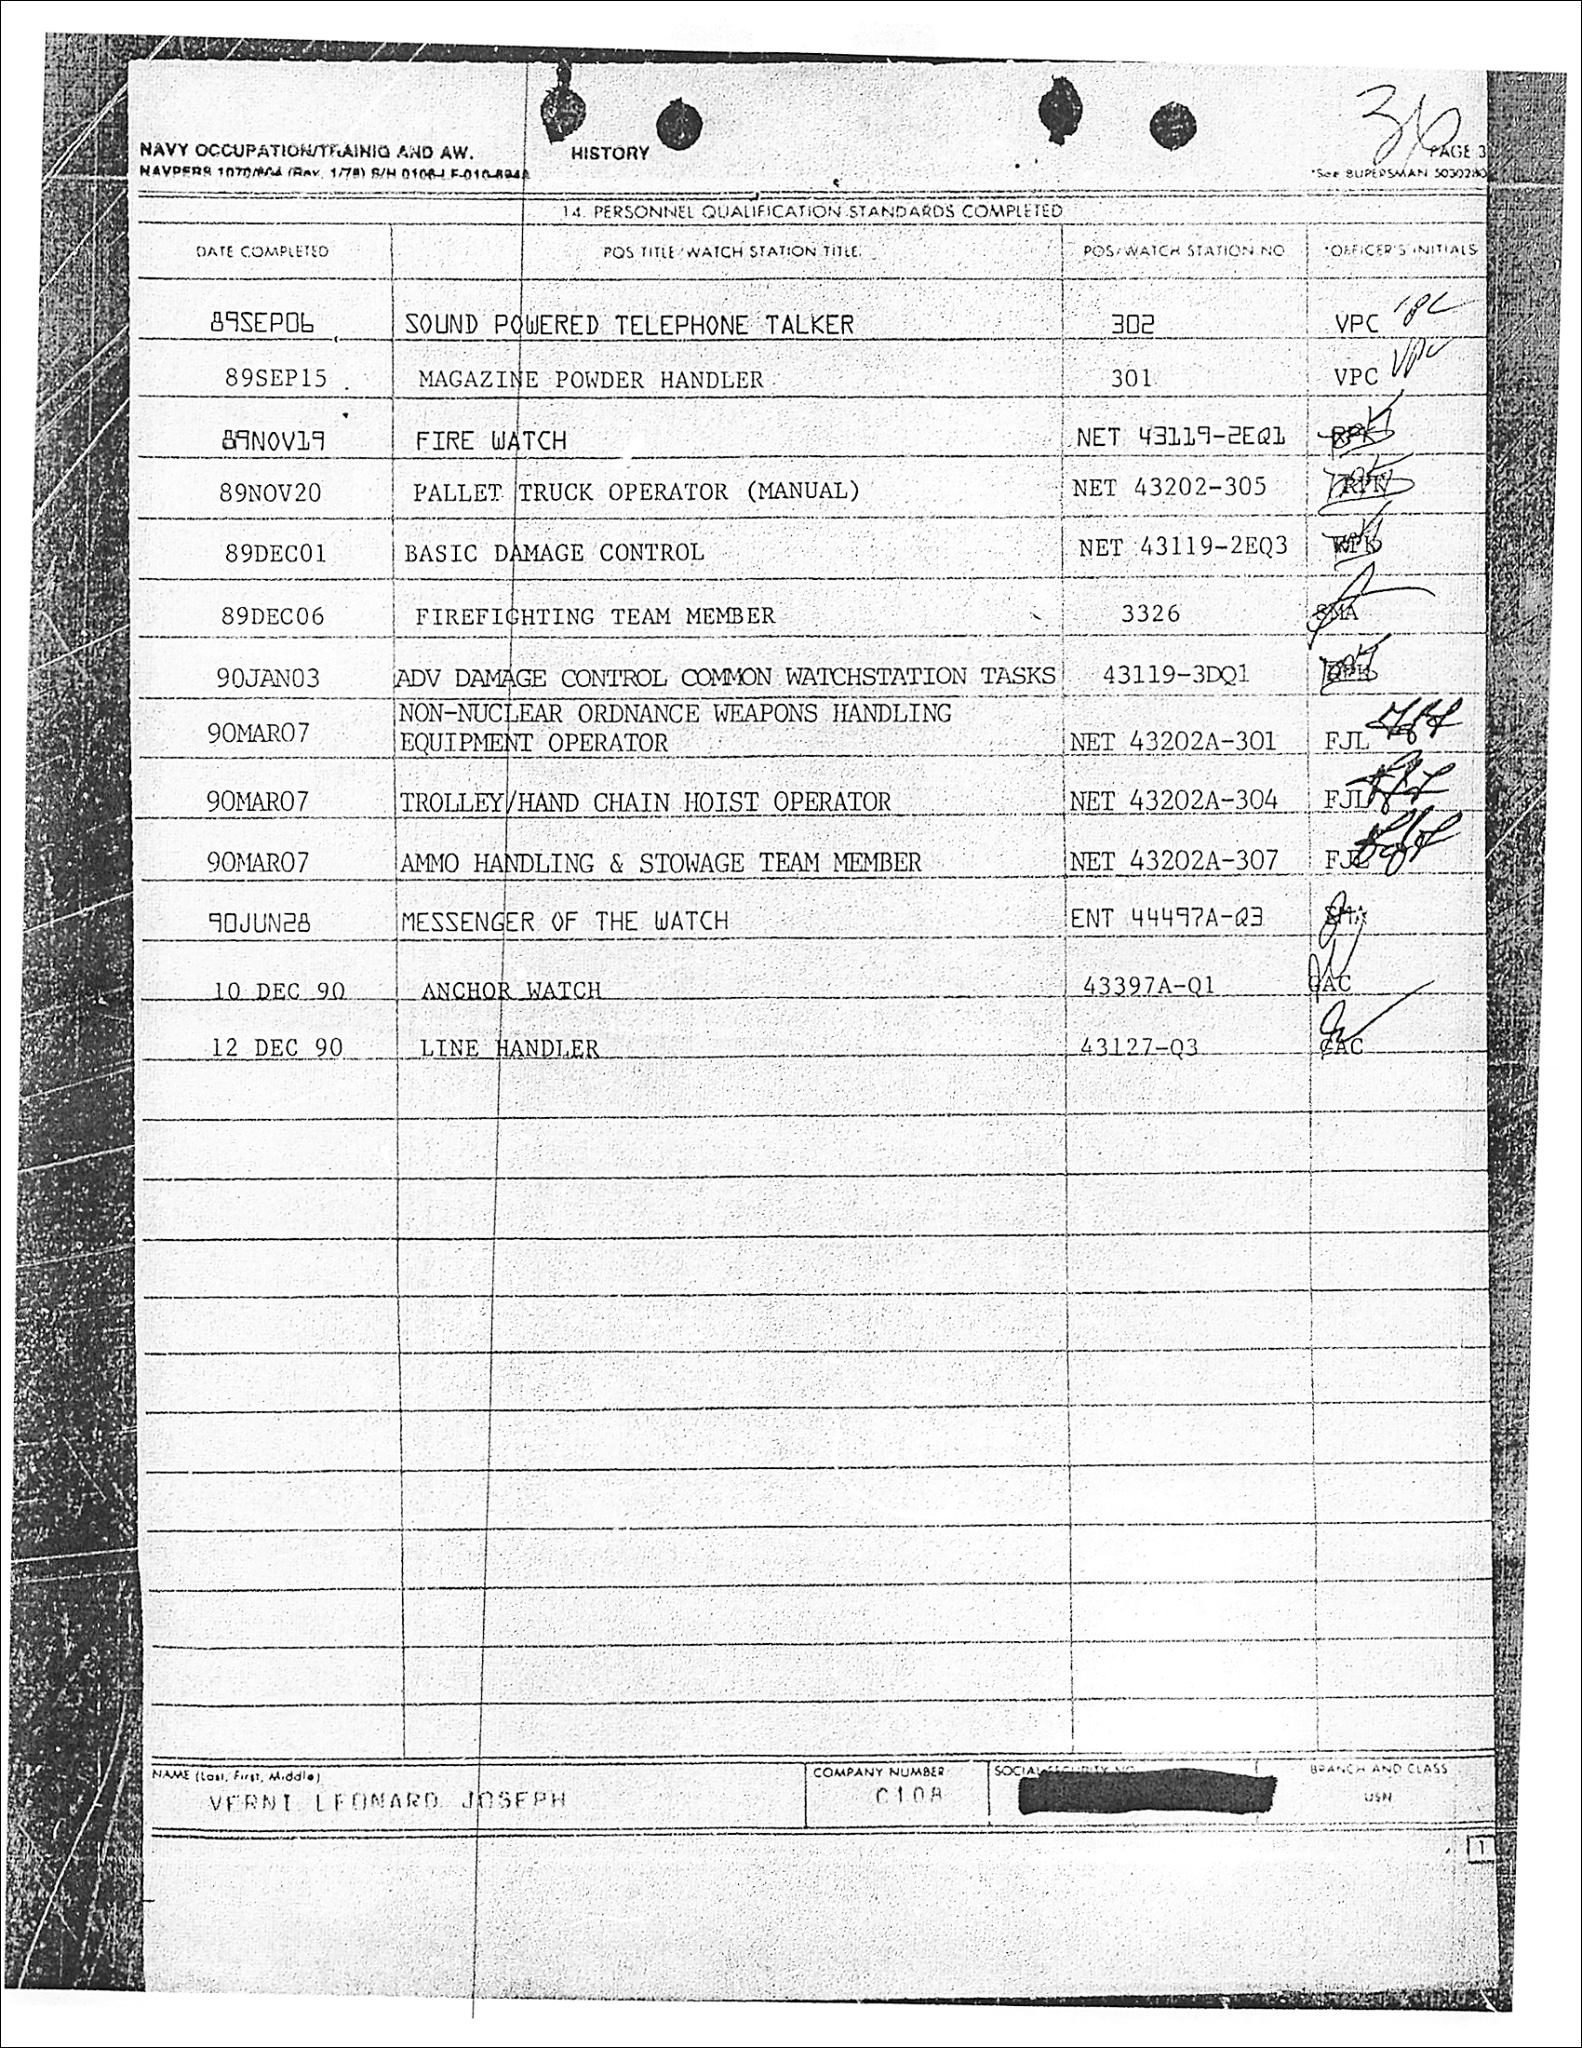 36
NAVY OCCUPATION/TRAINIG AND AW. HISTORY PAGE 3
NAVPERS 1070/604 (Rev. 1/78) S/N 0106-LF-010 *See BUPERSMAN 5030280
14. PERSONNEL QUALIFICATION STANDARDS COMPLETED
DATE COMPLETED PQS TITLE/WATCH STATION TITLE PQS/WATCH STATION NO *OFFICER'S INITIALS
89SEP06 SOUND POWERED TELEPHONE TALKER 302 VPC VPC
89SEP15 MAGAZINE POWDER HANDLER 301 VPC VPC
89NOV19 FIRE WATCH NET 43119-2EQ1
89NOV20 PALLET TRUCK OPERATOR (MANUAL) NET 43202-305
89DEC01 BASIC DAMAGE CONTROL NET 43119-2EQ3
89DEC06 FIREFIGHTING TEAM MEMBER 3326 SMA
90JAN03 ADV DAMAGE CONTROL COMMON WATCHSTATION TASKS 43119-3DQ1
NON-NUCLEAR ORDNANCE WEAPONS HANDLING
90MAR07 EQUIPMENT OPERATOR NET 43202A-301 FJL FJL
90MAR07 TROLLEY/HAND CHAIN HOIST OPERATOR NET 43202A-304 FJL FJL
90MAR07 AMMO HANDLING & STOWAGE TEAM MEMBER NET 43202A-307 FJL FJL
90JUN28 MESSENGER OF THE WATCH ENT 44497A-Q3 SMA
10 DEC 90 ANCHOR WATCH 43397A-Q1 GAC
12 DEC 90 LINE HANDLER 43127-Q3 GAC
NAME (Last, First, Middle) COMPANY NUMBER SOCIAL SECURITY NO. BRANCH AND CLASS
VERNI LEONARD JOSEPH C108 USN
1